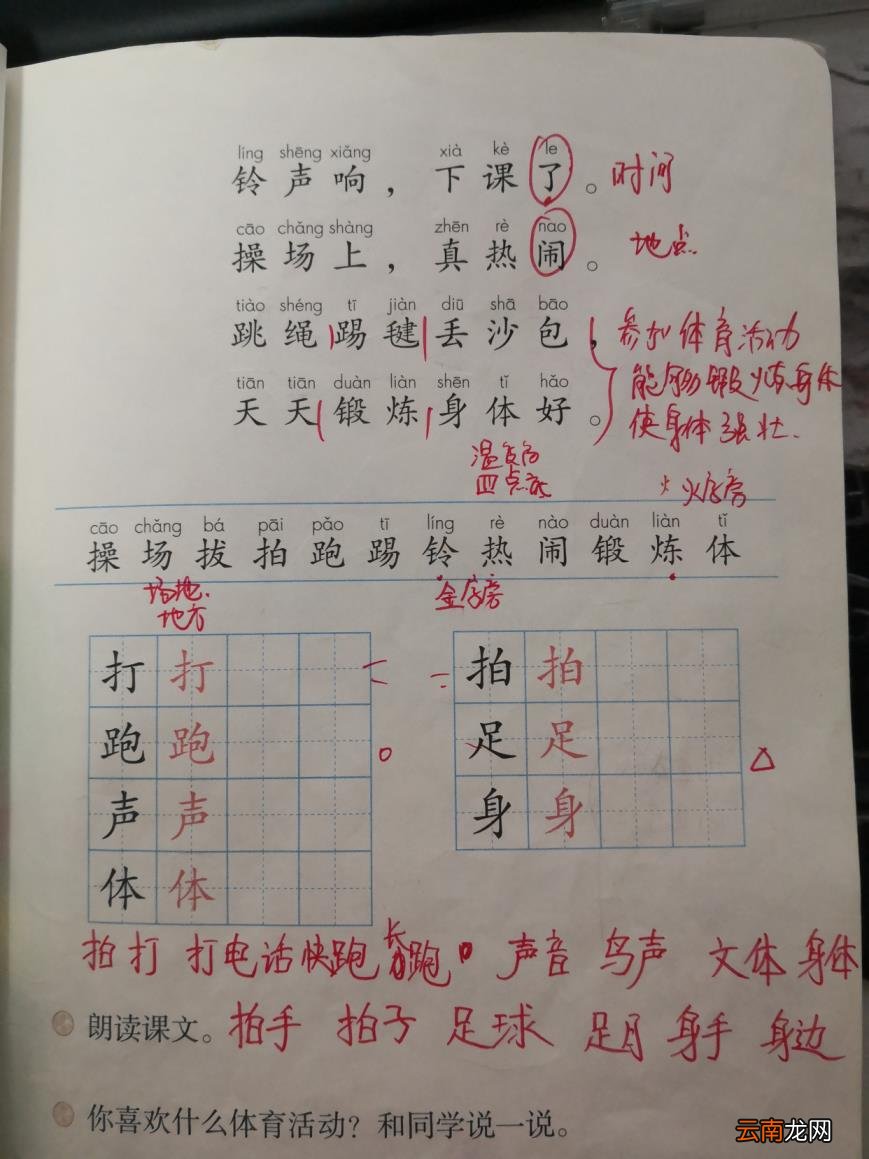 líng shēng xiǎng xià kè le
铃声响，下课了。 时间
cāo chǎng shàng zhēn rè nao
操场上，真热闹。 地点
tiào shéng tī jiàn diū shā bāo
跳绳踢毽丢沙包， 参加体育活动
tiān tiān duàn liàn shēn tǐ hǎo
天天锻炼身体好。 能够锻炼身体
使身体强壮.
四点底 火字旁
cāo chǎng bá pāi pǎo tī líng rè nào duàn liàn tǐ
操场拔拍跑踢铃热闹锻炼体
场地. 金字旁
地方
打打 拍拍
跑跑 足足
声声 身身
体体
拍打 打电话 快跑 长跑 声音 鸟声 文体 身体
朗读课文。 拍手 拍子 足球 足月 身手 身边
你喜欢什么体育活动？和同学说一说。
云南龙网